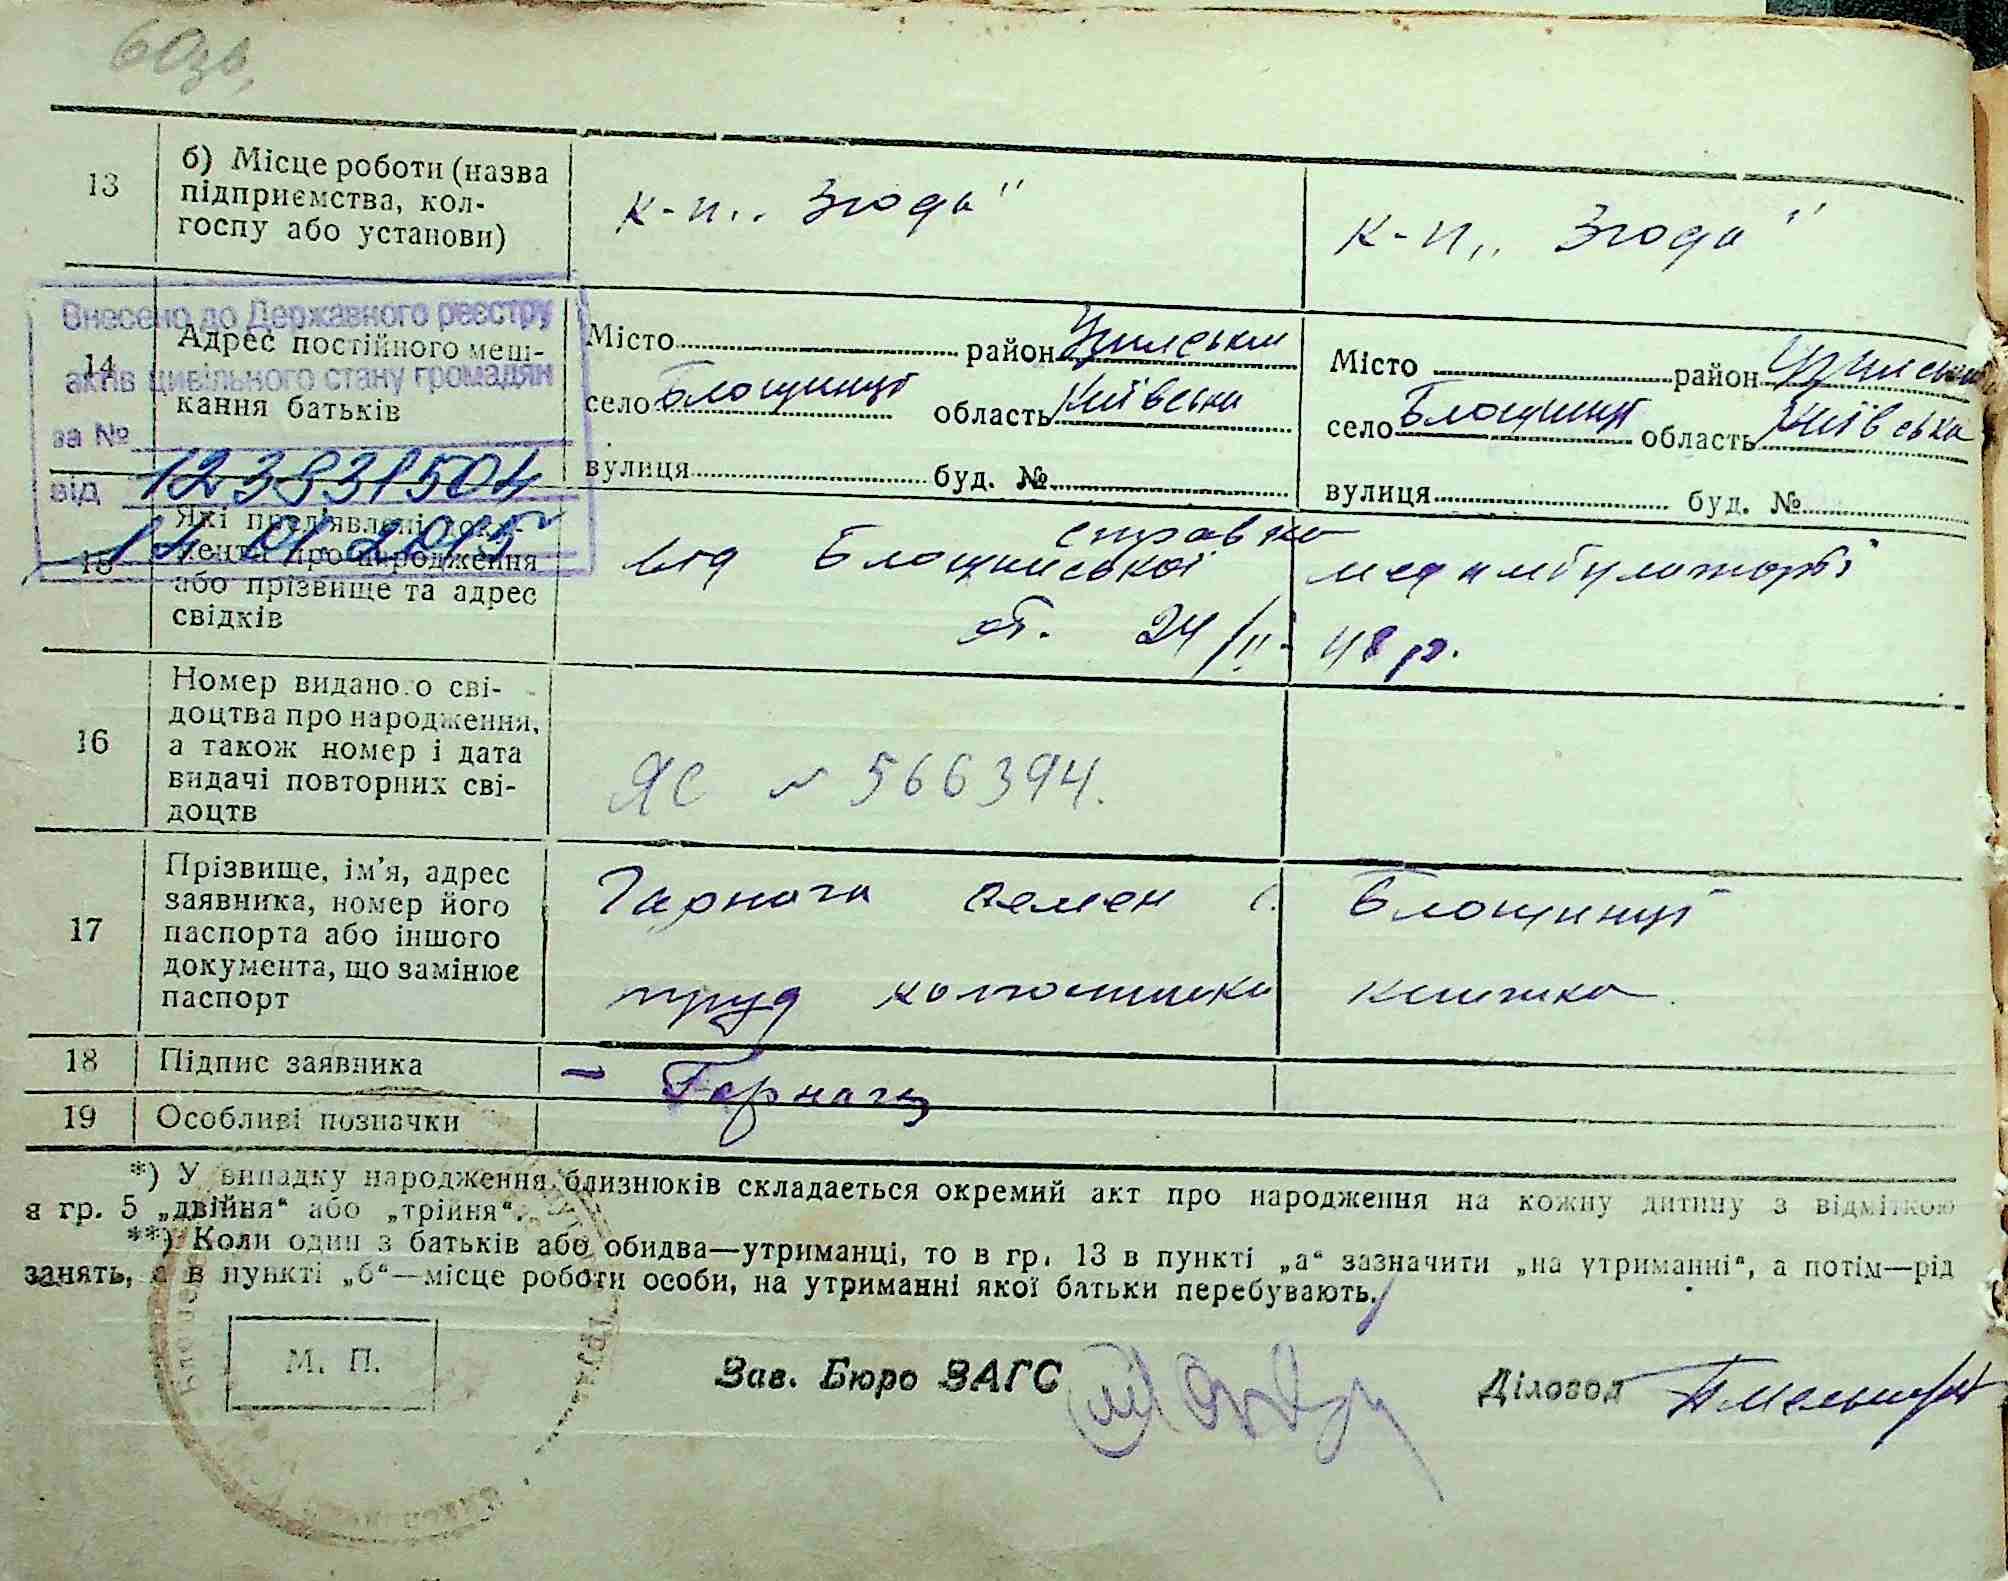 60зв.
13
б) Місце роботи (назва
підприємства, кол-
госпу або установи)
к-п „ Згода"
к-п „ Згода"
Внесено до Державного реєстру
актів цивільного стану громадян
за № 
від 12383 1504
14 01 2015
14
Адрес постійного меш-
кання батьків
Місто район Узинський
село Блощинці область Київська
вулиця буд. №
Місто район Узинський
село Блощинці область Київська
вулиця буд. №
15
Які пред'явлені доку-
менти про народження
або прізвище та адрес
свідків
справка
від Блощинської медамбулаторії
от. 24/II. 48 р.
16
Номер виданого сві-
доцтва про народження,
а також номер і дата
видачі повторних сві-
доцтв
ЯС № 566394.
17
Прізвище, ім'я, адрес
заявника, номер його
паспорта або іншого
документа, що замінює
паспорт
Гарнага Семен с. Блощинці
труд колгоспника книжка.
18
Підпис заявника
– Гарнага
19
Особливі позначки
*) У випадку народження близнюків складається окремий акт про народження на кожну дитину з відміткою
в гр. 5 „двійня“ або „трійня“.
**) Коли один з батьків або обидва—утриманці, то в гр. 13 в пункті „а“ зазначити „на утриманні“, а потім—рід
занять, а в пункті „б“—місце роботи особи, на утриманні якої батьки перебувають.
М. П.
Зав. Бюро ЗАГС
Діловод